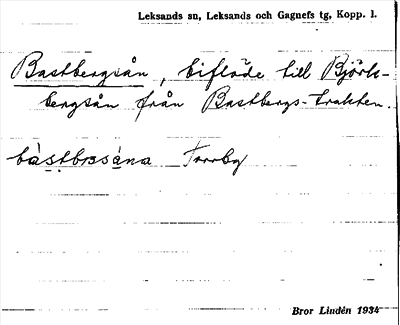 Leksands sn, Leksands och Gagnefs tg, Kopp. l.
Bastbergsån, biflöde till Björk-
bergsån från Bastbergs-trakten.
bàstbrsána Torrby
Bror Lindén 1934